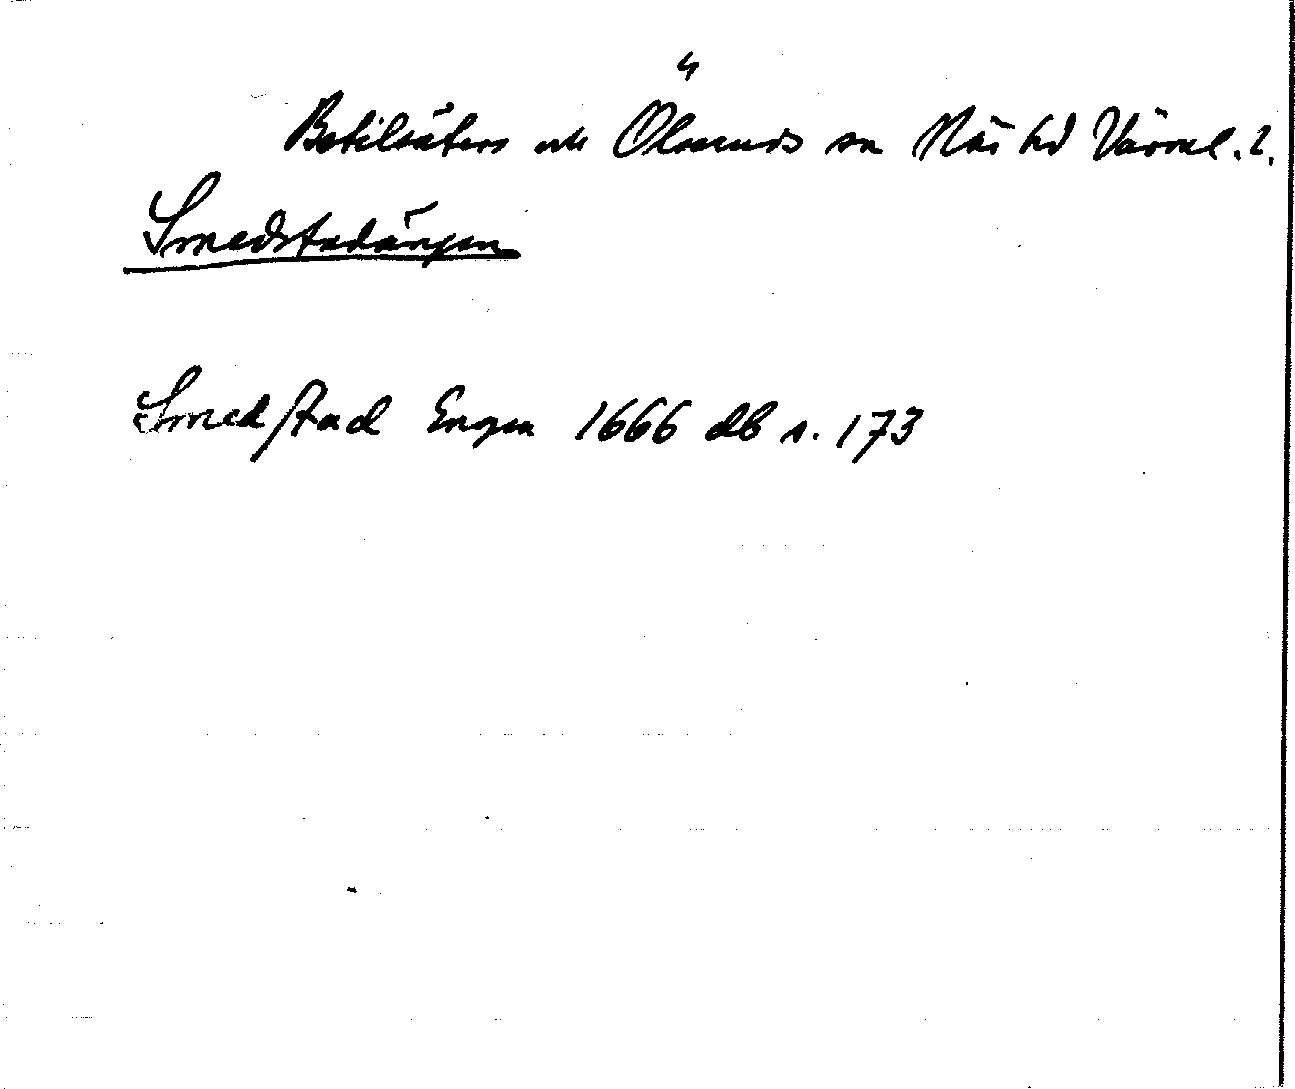 4
Botilsäters och Ölseruds sn Näs hd Värml. l.
Smedstadängen
Smedstad Engen 1666 db s. 173